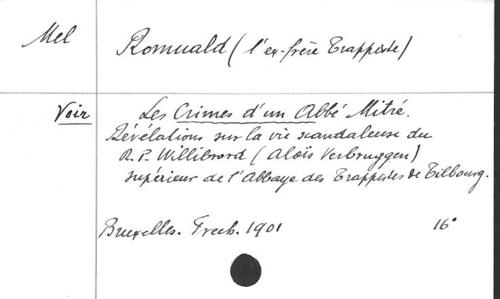 Mel Romuald (l'ex-frère Trappiste)
Voir Les Crimes d'un Abbé Mitré.
Révélations sur la vie scandaleuse du
R. P. Willibrord (Aloïs Verbruggen)
supérieur de l'Abbaye des Trappistes de Tilbourg.
Bruxelles. Frech. 1901 16°